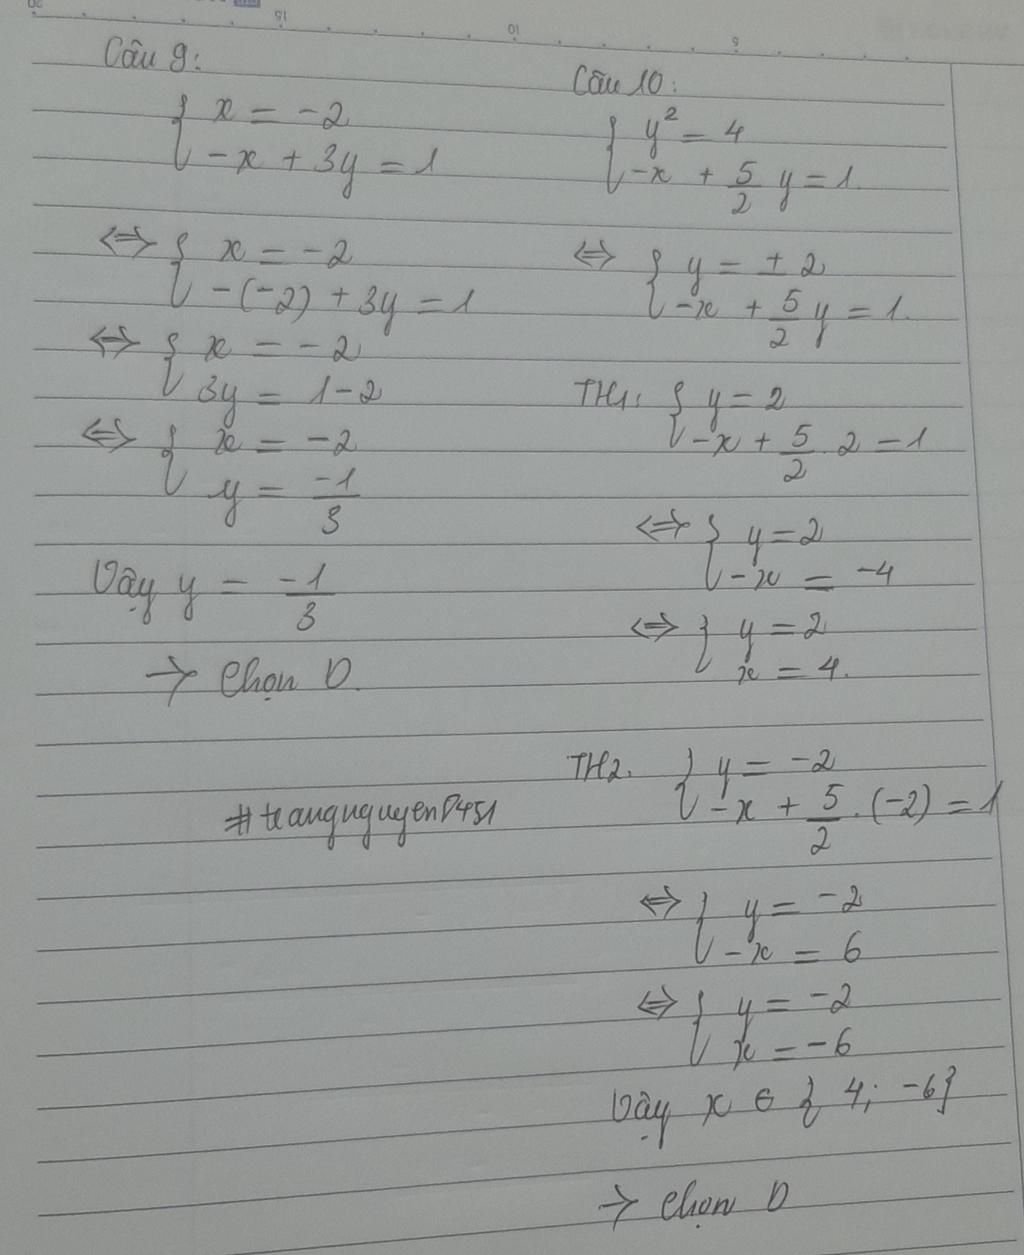 Câu 9:
{ x = -2
-x + 3y = 1
<=> { x = -2
-(-2) + 3y = 1
<=> { x = -2
3y = 1-2
<=> { x = -2
y = -1/3
Vậy y = -1/3
-> Chọn D.
#trangnguyen0451
Câu 10:
{ y² = 4
-x + 5/2 y = 1.
<=> { y = ± 2
-x + 5/2 y = 1.
TH1: { y = 2
-x + 5/2 . 2 = 1
<=> { y = 2
-x = -4
<=> { y = 2
x = 4.
TH2. { y = -2
-x + 5/2 . (-2) = 1
<=> { y = -2
-x = 6
<=> { y = -2
x = -6
Vậy x ∈ { 4; -6}
-> Chọn D